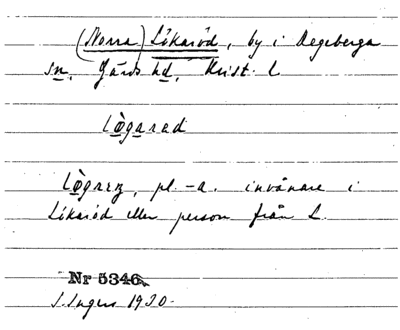 (Norra) Likaröd, by i Degeberga
sn, Gärds hd, Krist. l
lògarad
lògarɐ, pl. -a. invånare i
Likaröd eller person från L.
Nr 5346.
I. Ingers 1930.